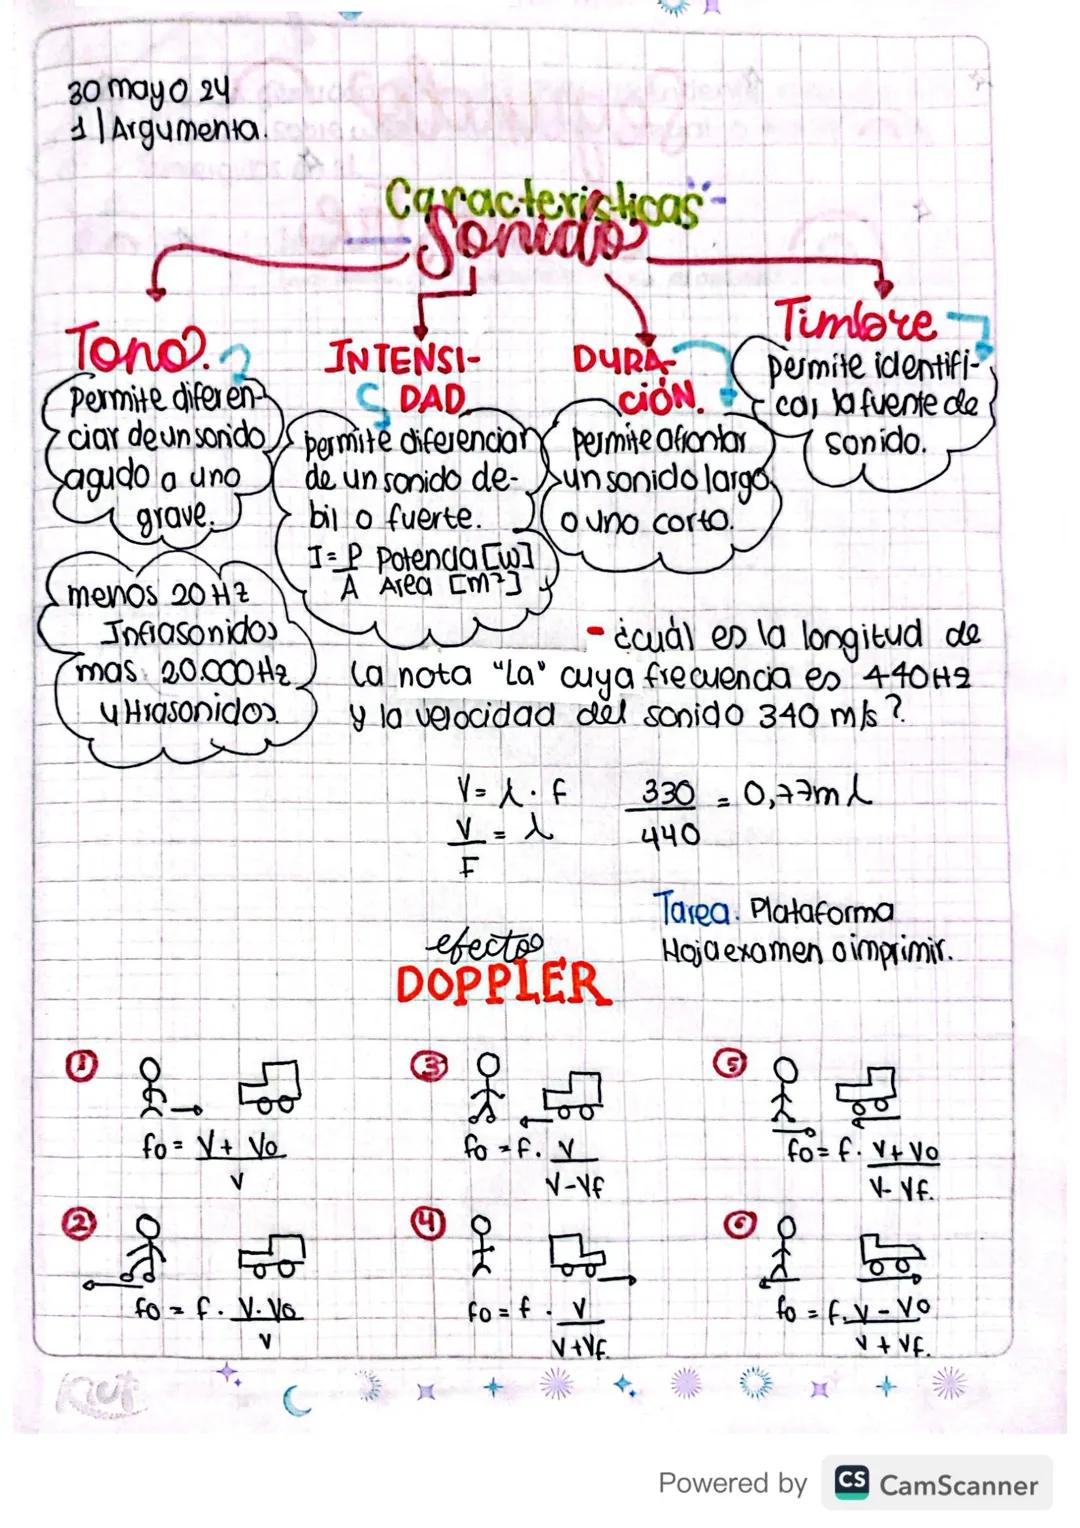 30 mayo 24
1 | Argumenta.
Características
Sonido
Tono.
Permite diferen-
ciar de un sonido
agudo a uno
grave.
menos 20 Hz
Infrasonidos
mas 20.000 Hz
ultrasonidos
INTENSI-
DAD
permite diferenciar
de un sonido de-
bil o fuerte.
I = P Potencia [W]
A Area [m²]
DURA-
CIÓN.
permite afrontar
un sonido largo
o uno corto.
Timbre
permite identifi-
car la fuente de
sonido.
- ¿cuál es la longitud de
la nota "La" cuya frecuencia es 440 Hz
y la velocidad del sonido 340 m/s?
V = λ · f
V = λ
F
330 = 0,77m λ
440
Tarea. Plataforma
Hoja examen o imprimir.
efecto
DOPPLER
1
fo = V + Vo
V
2
fo = f · V · Vo
V
3
fo = f · V
V - Vf
4
fo = f · V
V + Vf.
5
fo = f · V + Vo
V - Vf.
6
fo = f. V - Vo
V + Vf.
Powered by CS CamScanner